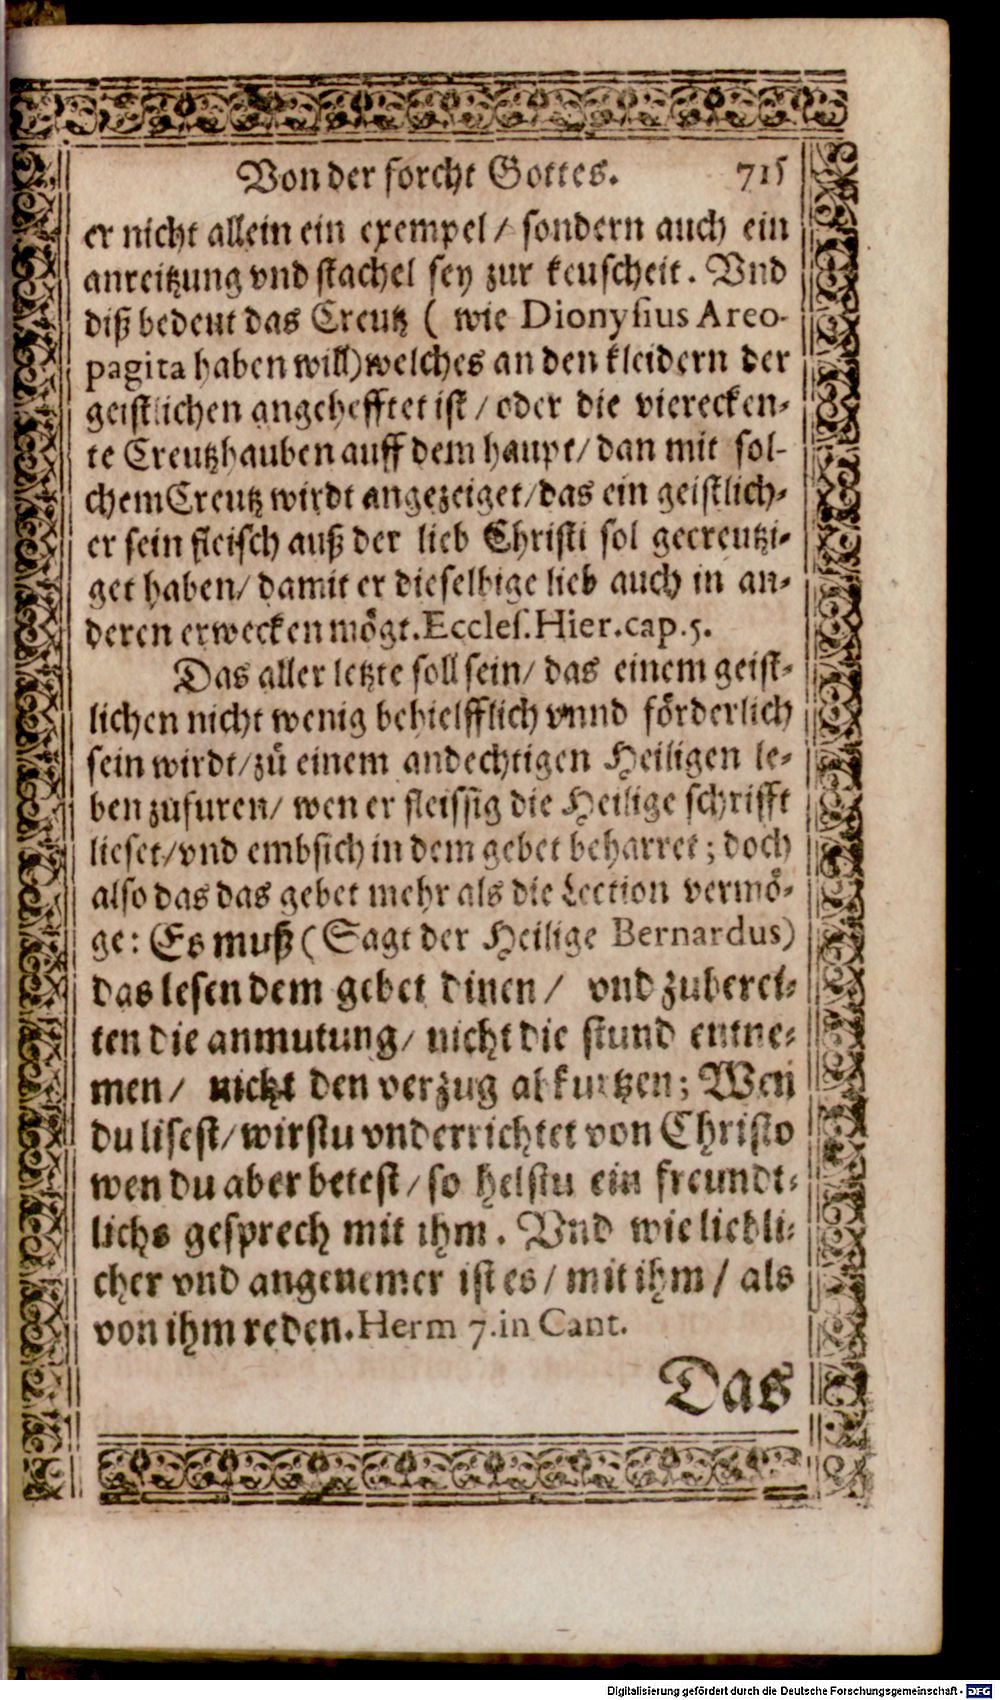 Von der forcht Gottes. 715
er nicht allein ein exempel / sondern auch ein
anreitzung vnd stachel sey zur keuscheit. Vnd
diß bedeut das Creutz ( wie Dionysius Areo-
pagita haben will) welches an den kleidern der
geistlichen angehefftet ist / oder die vierecken-
te Creutzhauben auff dem haupt / dan mit sol-
chem Creutz wirdt angezeiget / das ein geistlich-
er sein fleisch auß der lieb Christi sol gecreutzi-
get haben / damit er dieselbige lieb auch in an-
deren erwecken mögt. Eccles. Hier. cap. 5.
Das aller letzte soll sein / das einem geist-
lichen nicht wenig behielfflich vnnd förderlich
sein wirdt / zů einem andechtigen Heiligen le-
ben zufuren / wen er fleissig die Heilige schrifft
lieset / vnd embsich in dem gebet beharret ; doch
also das das gebet mehr als die Lection vermö-
ge : Es muß ( Sagt der Heilige Bernardus)
das lesen dem gebet dinen / vnd zuberei-
ten die anmutung / nicht die stund entne-
men / nicht den verzug abkurtzen ; Wen
du lisest / wirstu vnderrichtet von Christo
wen du aber betest / so helstu ein freundt-
lichs gesprech mit ihm . Vnd wie liebli-
cher vnd angenemer ist es / mit ihm / als
von ihm reden. Herm 7. in Cant.
Das
Digitalisierung gefördert durch die Deutsche Forschungsgemeinschaft - DFG